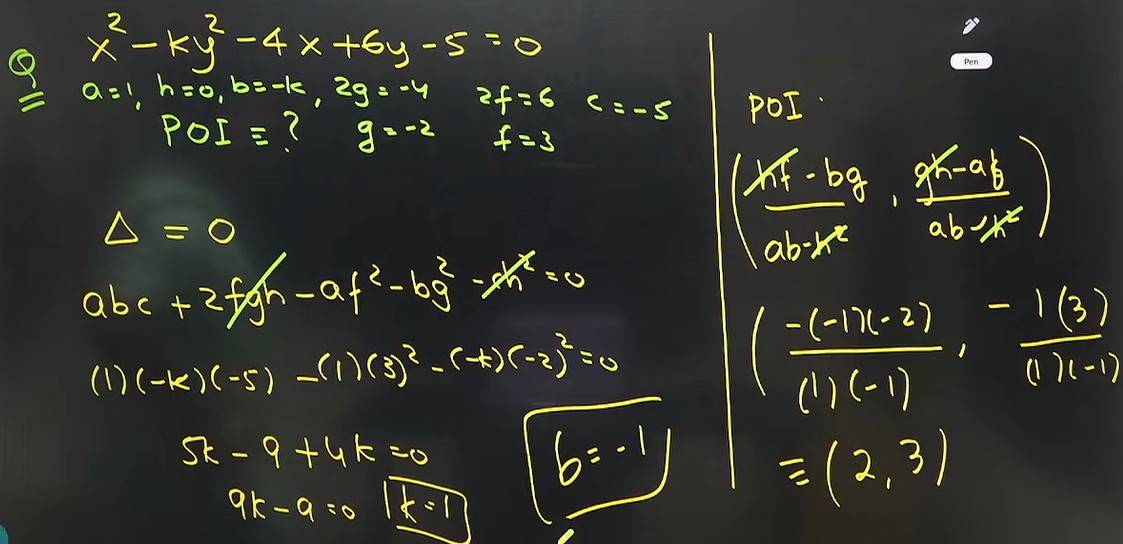 Q x² - ky² - 4x + 6y - 5 = 0
a=1, h=0, b=-k, 2g=-4 2f=6 c=-5
POI ≡ ? g=-2 f=3
Δ = 0
abc + 2fgh - af² - bg² - ch² = 0
(1)(-k)(-5) - (1)(3)² - (-k)(-2)² = 0
5k - 9 + 4k = 0
9k - 9 = 0 k=1
b = -1
Pen
POI.
( hf - bg / ab - h² , gh - af / ab - h² )
( -(-1)(-2) / (1)(-1) , - 1(3) / (1)(-1)
≡ (2, 3)